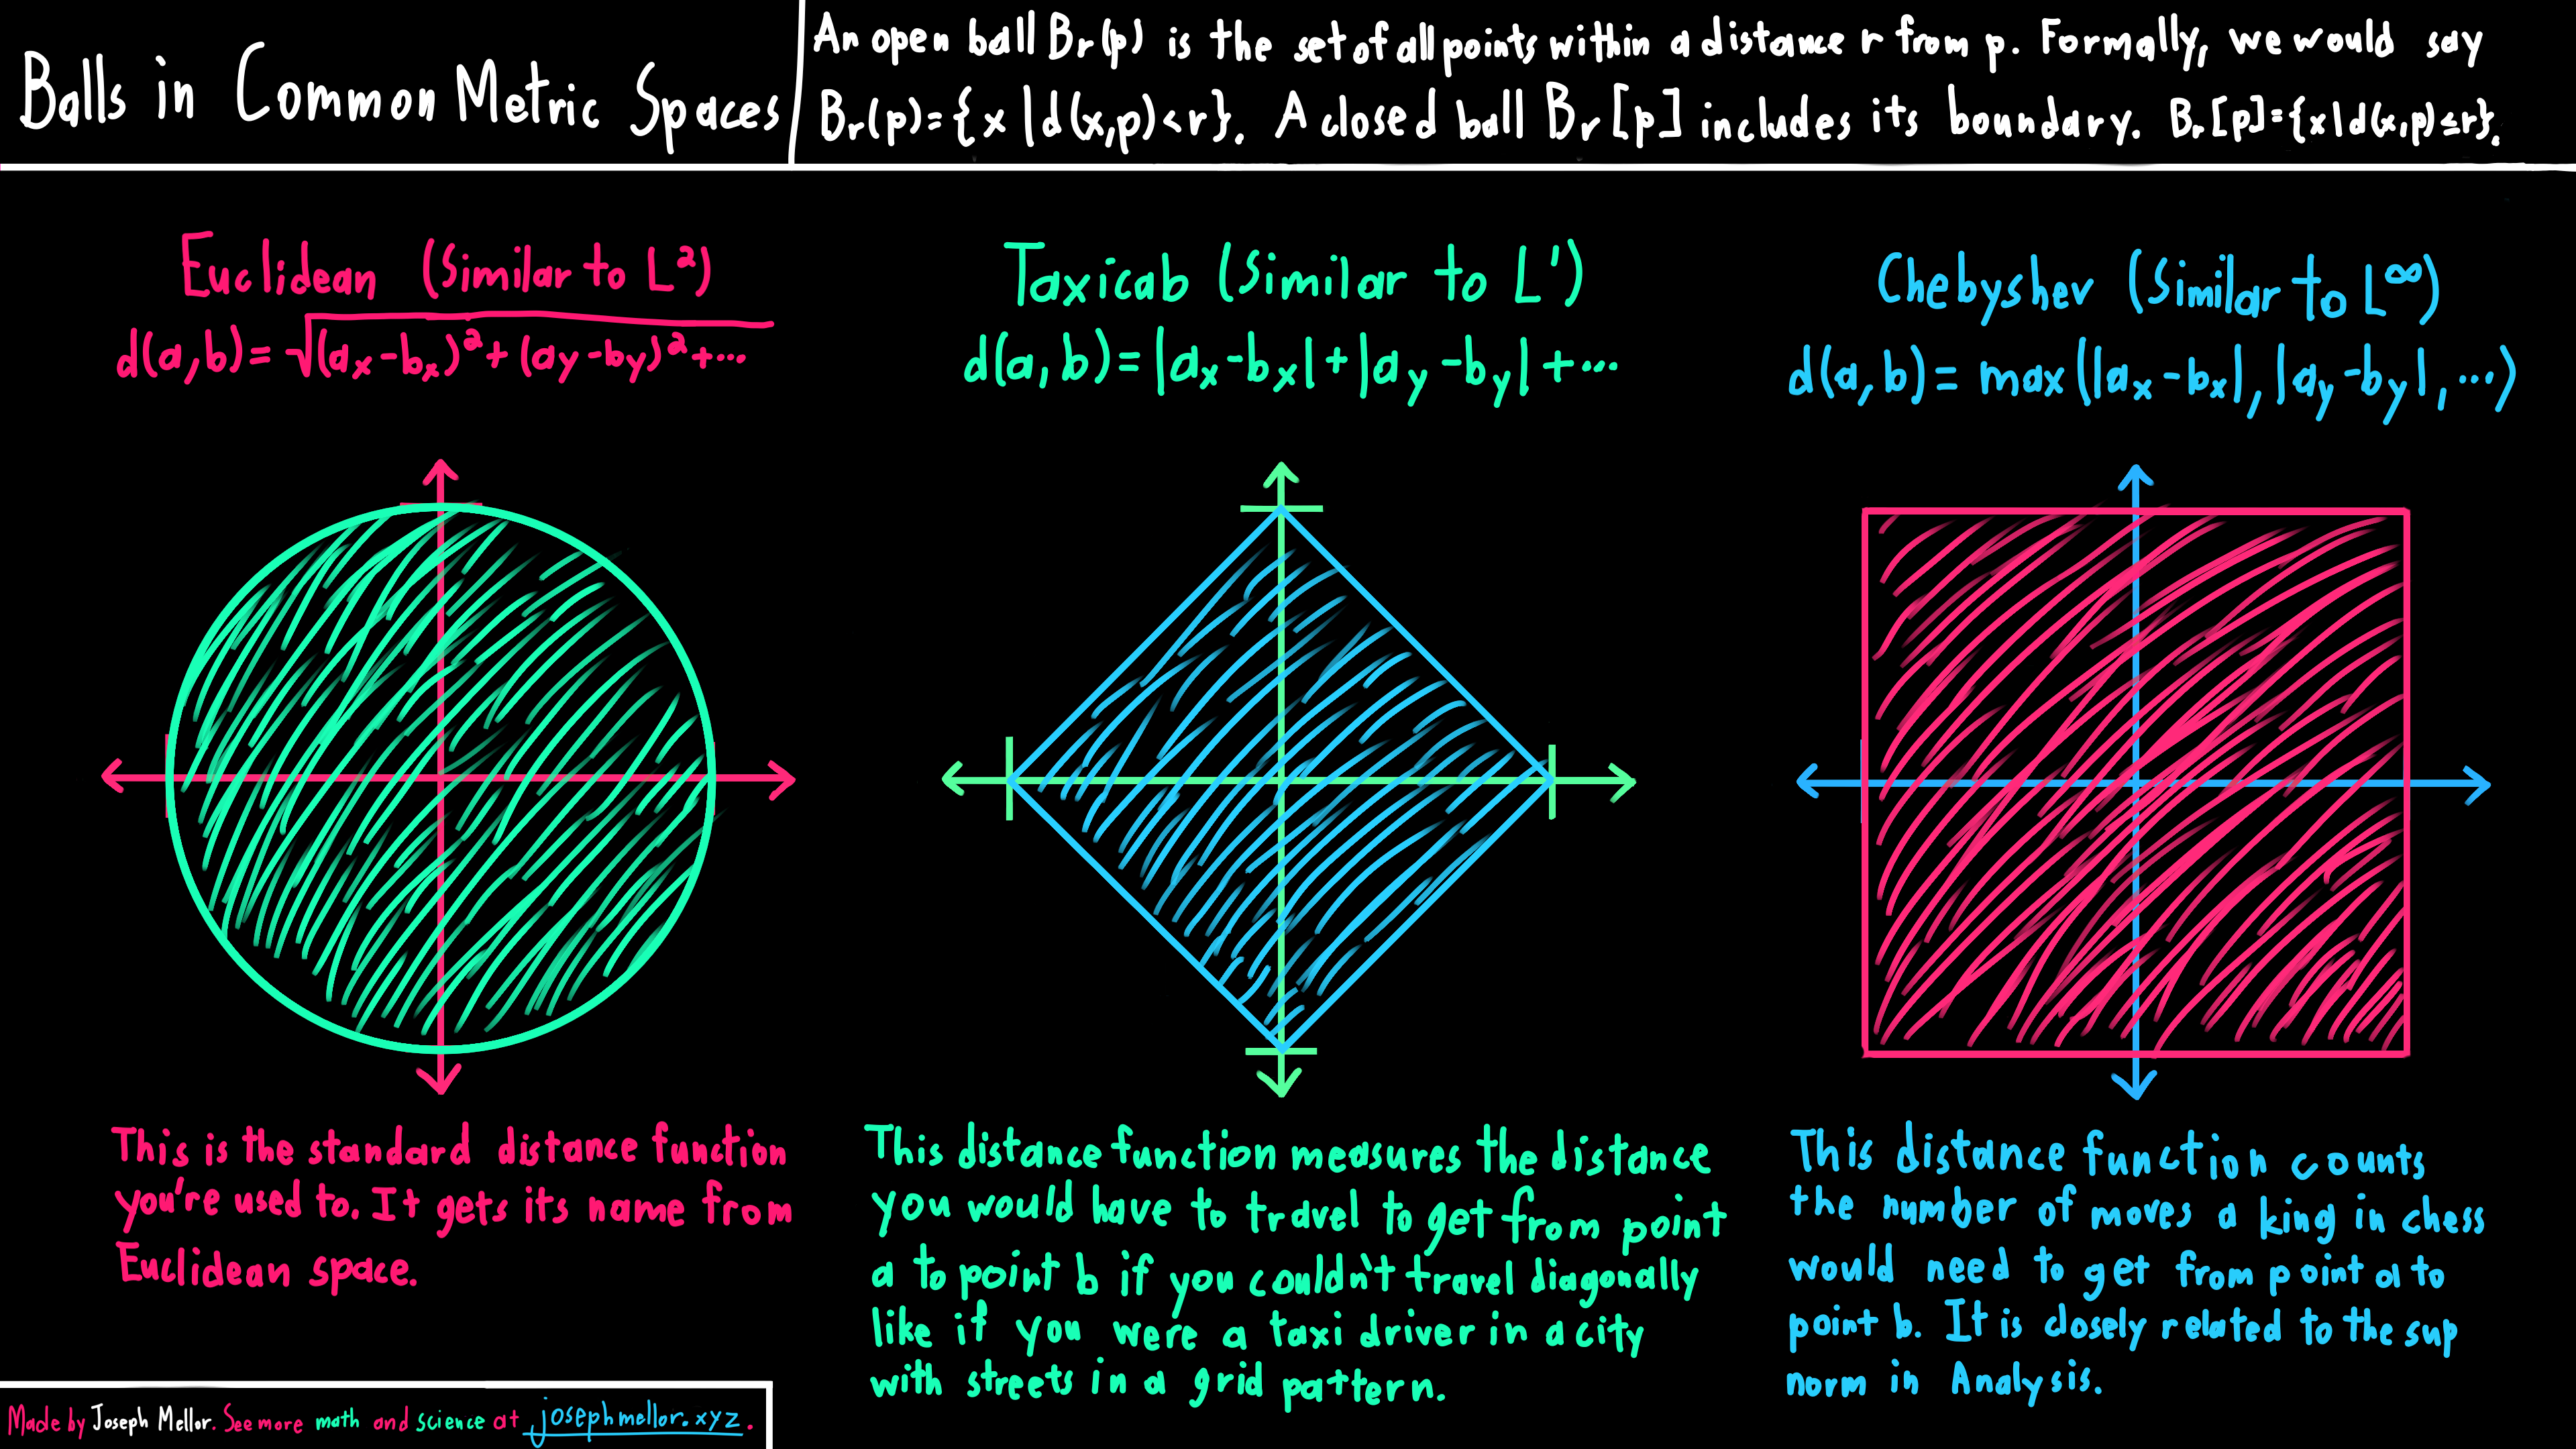 Balls in Common Metric Spaces
An open ball Br(p) is the set of all points within a distance r from p. Formally, we would say
Br(p)={x|d(x,p)<r}. A closed ball Br[p] includes its boundary. Br[p]={x|d(x,p)≤r}.
Euclidean (Similar to L²)
d(a,b)=√(aₓ-bₓ)²+(ay-by)²+···
This is the standard distance function
you're used to. It gets its name from
Euclidean space.
Taxicab (Similar to L¹)
d(a,b)=|aₓ-bₓ|+|ay-by|+···
This distance function measures the distance
you would have to travel to get from point
a to point b if you couldn't travel diagonally
like if you were a taxi driver in a city
with streets in a grid pattern.
Chebyshev (Similar to L∞)
d(a,b)=max(|aₓ-bₓ|,|ay-by|,···)
This distance function counts
the number of moves a king in chess
would need to get from point a to
point b. It is closely related to the sup
norm in Analysis.
Made by Joseph Mellor. See more math and science at josephmellor.xyz.